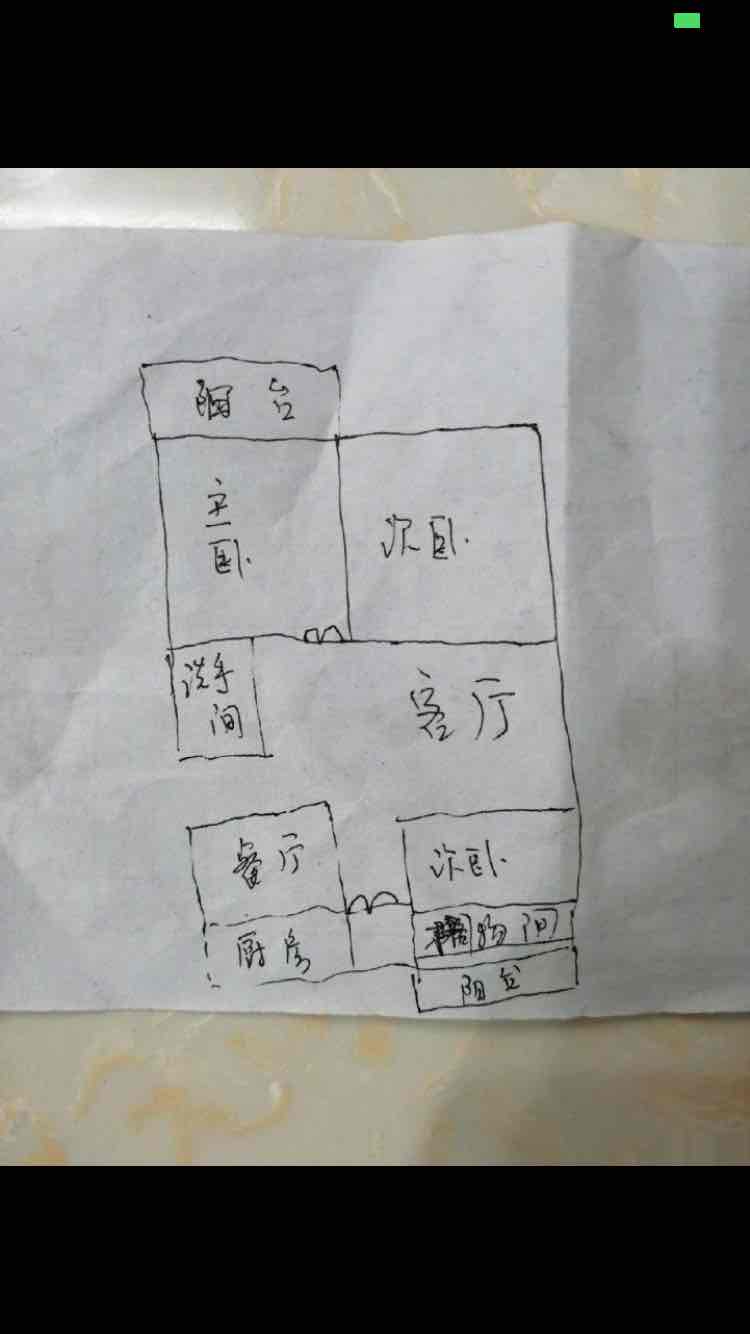 阳台
主卧
次卧
洗手间
客厅
餐厅
次卧
厨房
物间
阳台